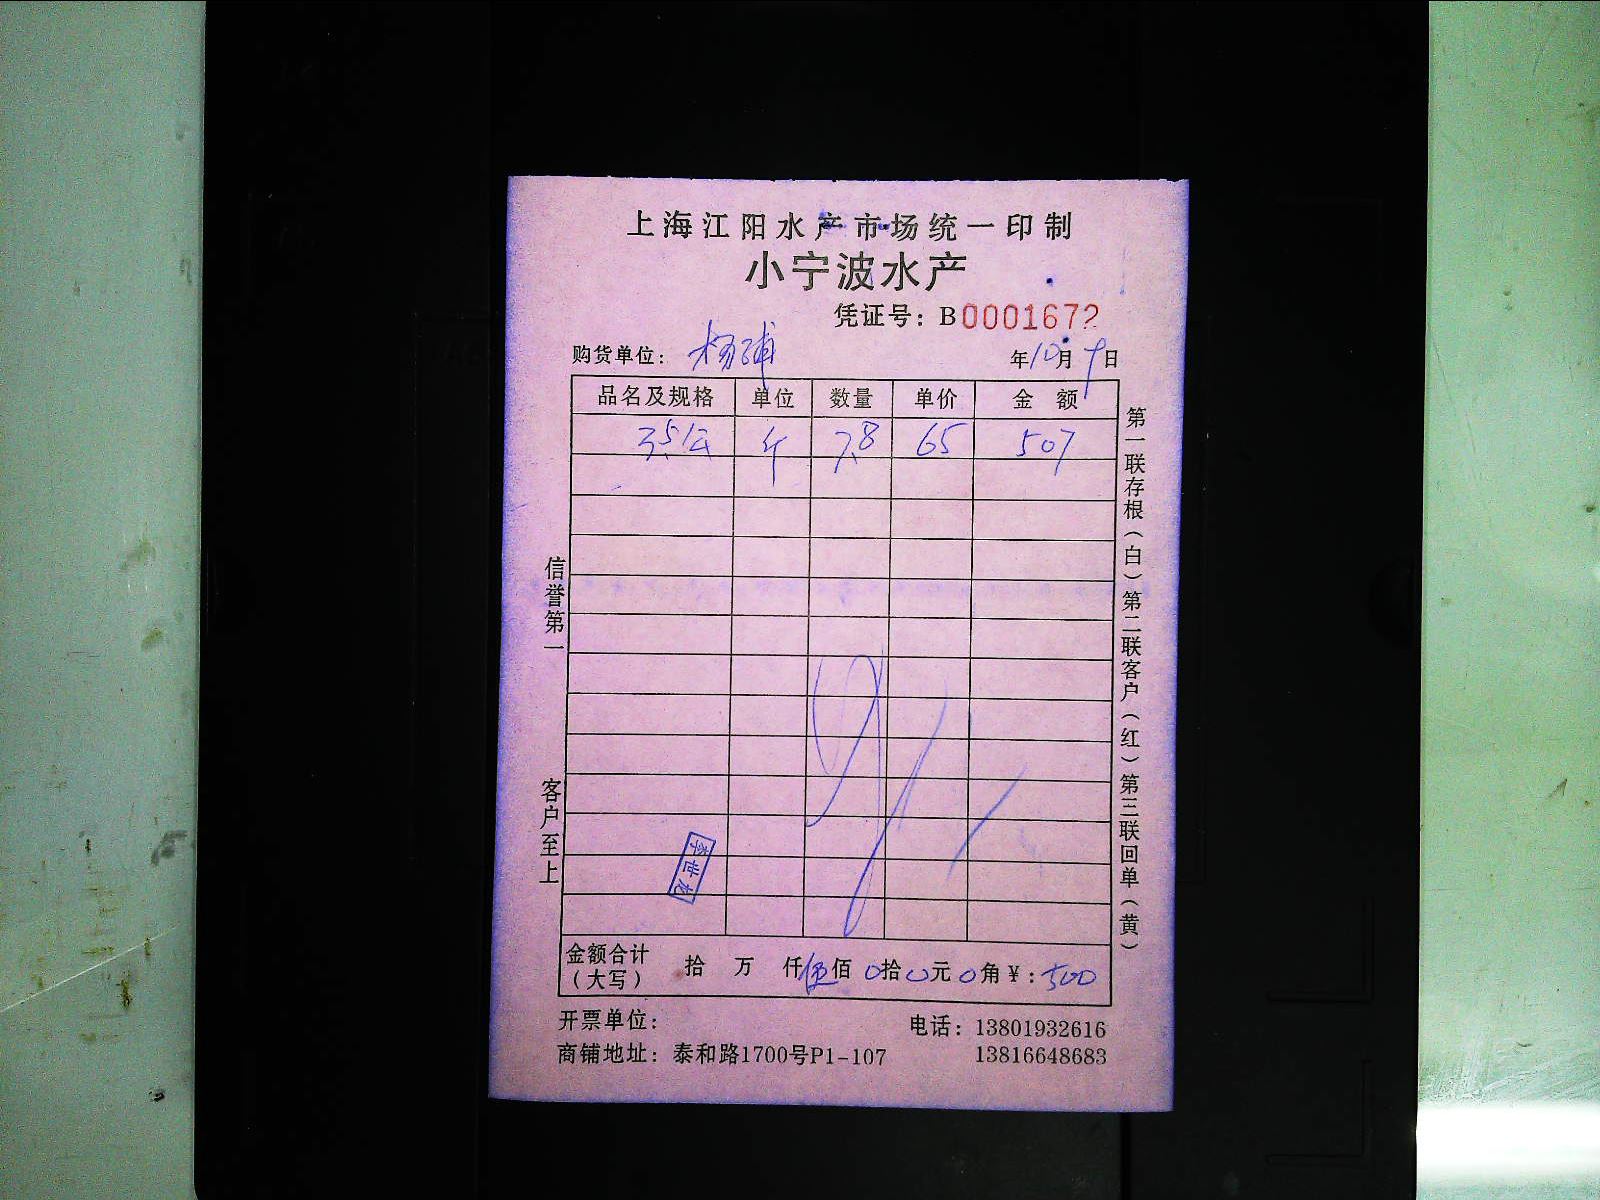 上海江阳水产市场统一印制
小宁波水产
凭证号：B0001672
购货单位：杨浦 年10月9日
品名及规格 单位 数量 单价 金额
3.5公 斤 7.8 65 507
信誉第一
客户至上
第一联存根（白）第二联客户（红）第三联回单（黄）
李世龙
金额合计（大写） 拾 万 仟伍佰0拾0元0角￥：500
开票单位： 电话：13801932616
商铺地址：泰和路1700号P1-107 13816648683